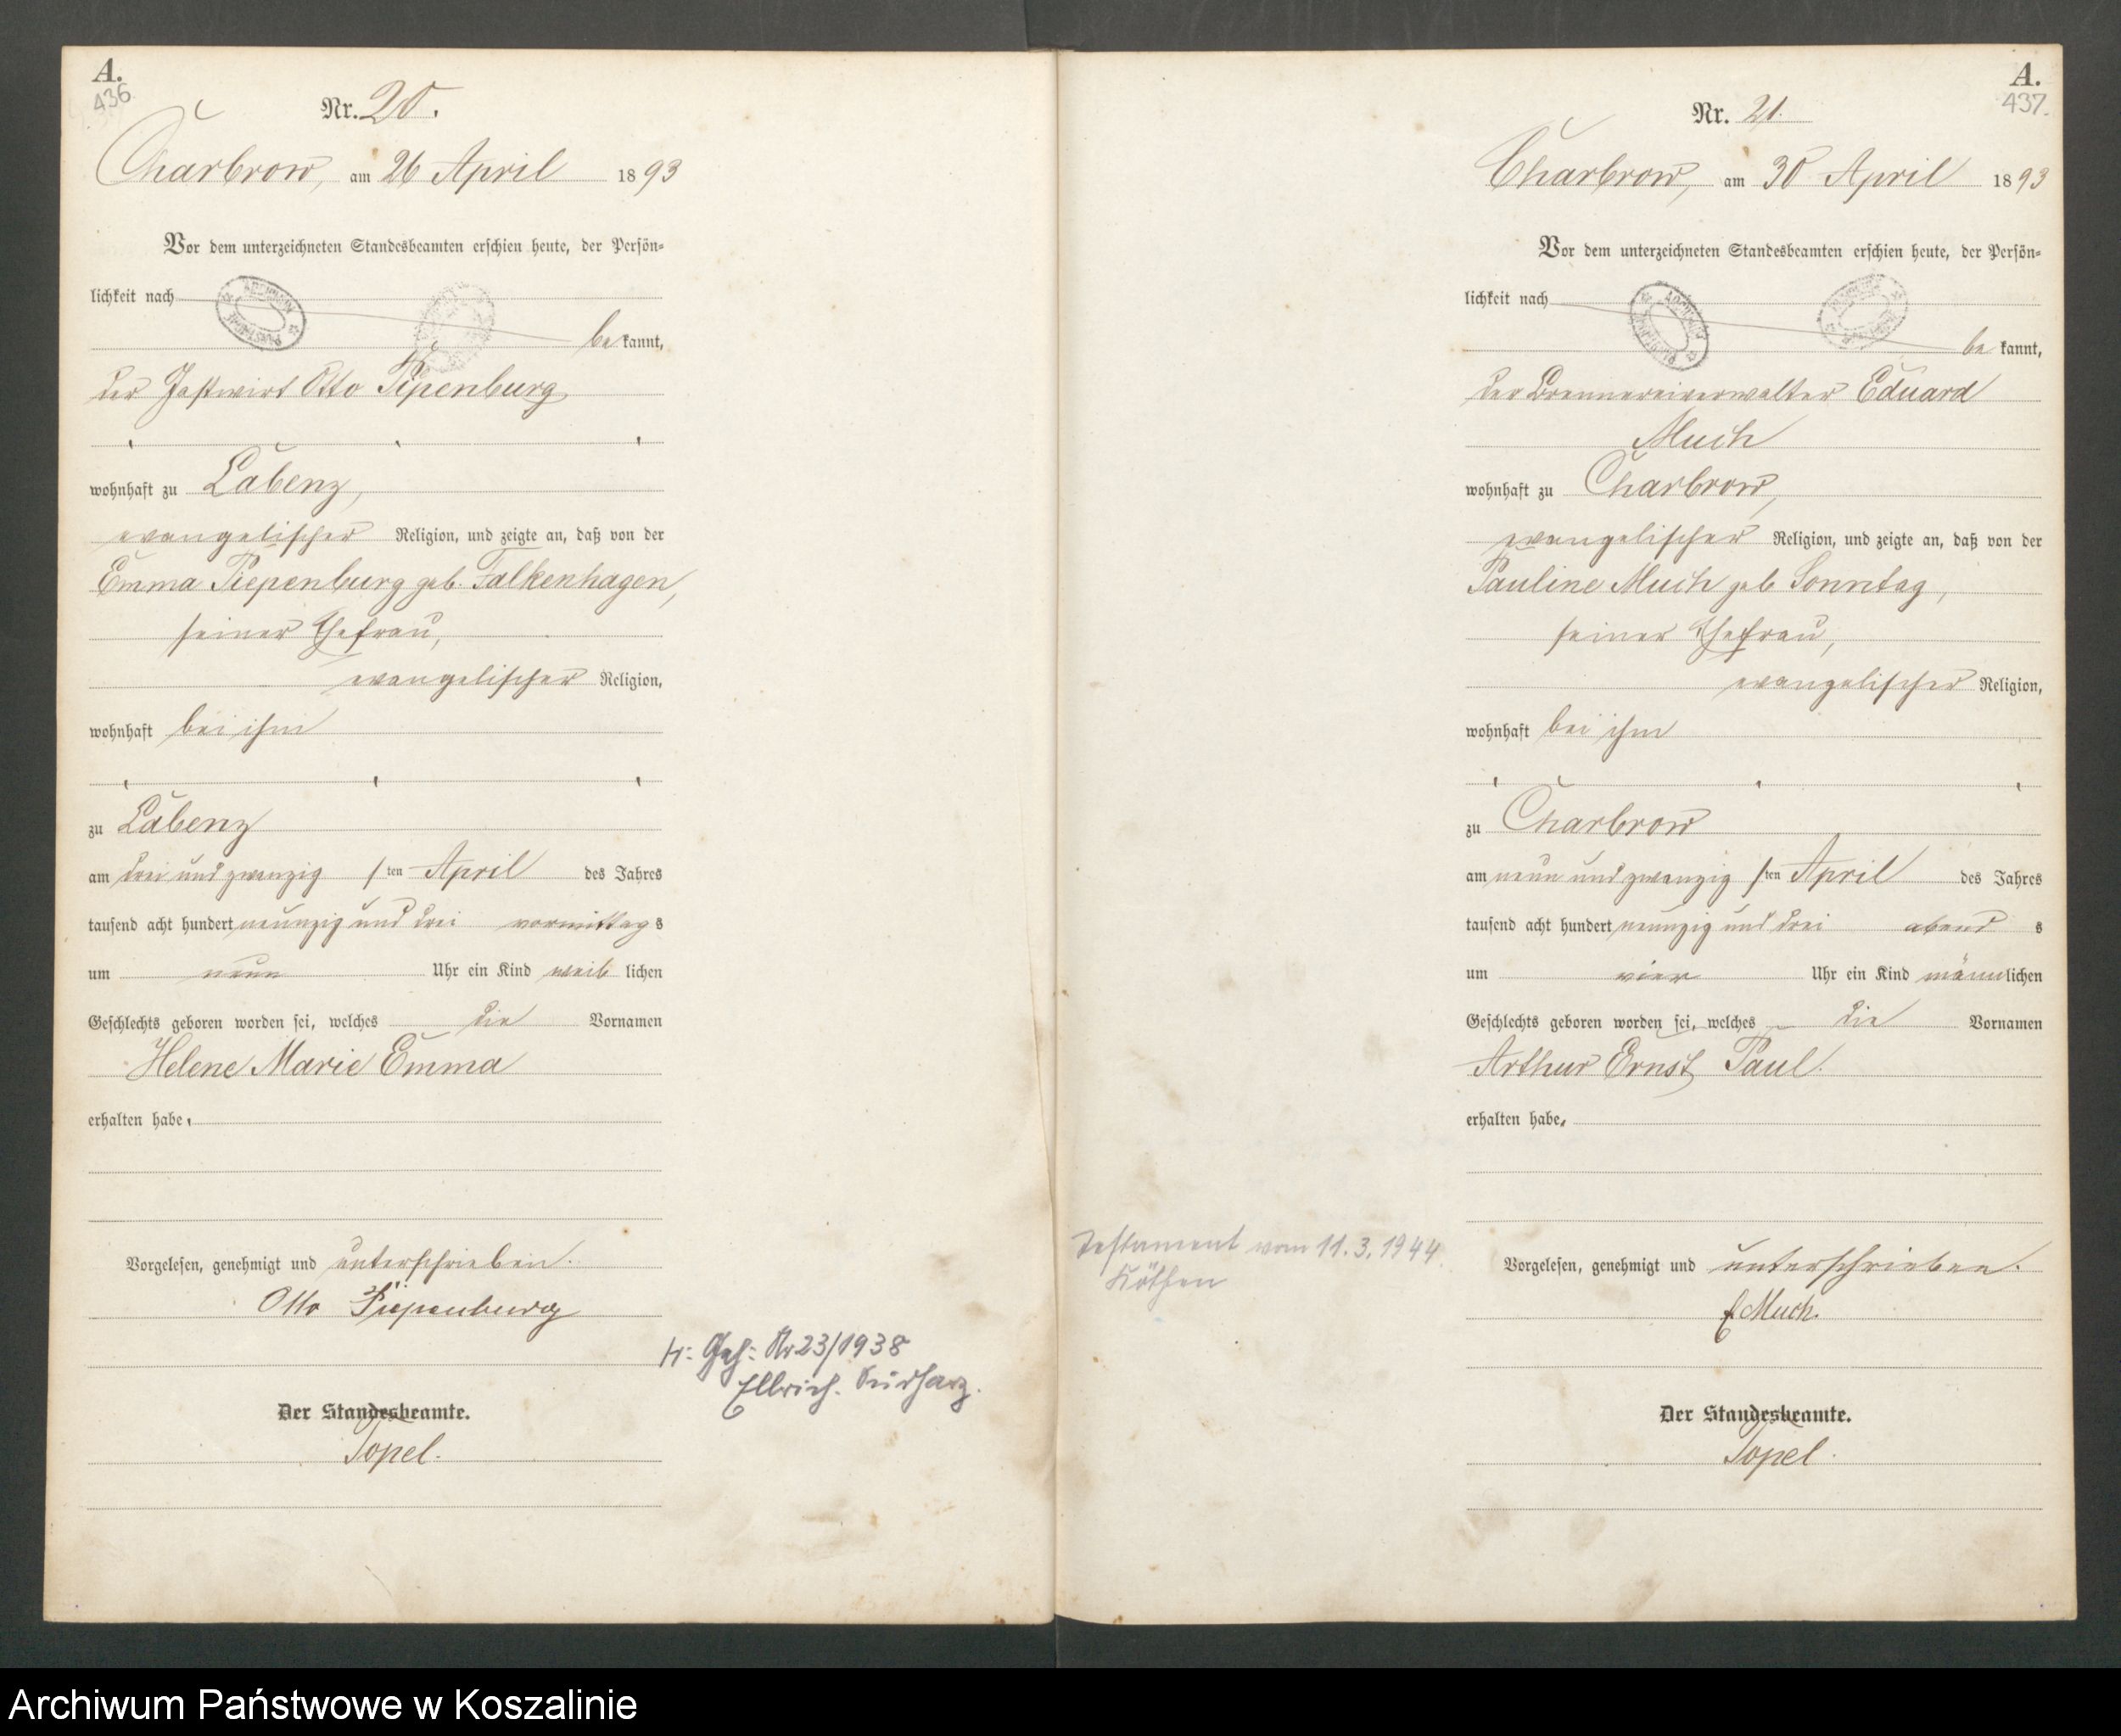 A.
436
Nr. 20.
Charbrow, am 26 April 1893
Vor dem unterzeichneten Standesbeamten erschien heute, der Persön-
lichkeit nach
bekannt,
der Gastwirt Otto Piepenburg
wohnhaft zu Labenz,
evangelischer Religion, und zeigte an, daß von der
Emma Piepenburg geb. Falkenhagen,
seiner Ehefrau,
evangelischer Religion,
wohnhaft bei ihm
zu Labenz
am drei und zwanzigsten April des Jahres
tausend acht hundert neunzig und drei vormittags
um neun Uhr ein Kind weiblichen
Geschlechts geboren worden sei, welches die Vornamen
Helene Marie Emma
erhalten habe.
Vorgelesen, genehmigt und unterschrieben.
Otto Piepenburg
Der Standesbeamte.
Topel.
Nr 23/1938
Ellrich. Südharz.
A.
437.
Nr. 21.
Charbrow, am 30 April 1893
Vor dem unterzeichneten Standesbeamten erschien heute, der Persön-
lichkeit nach
bekannt,
der Brennereiverwalter Eduard
Much
wohnhaft zu Charbrow,
evangelischer Religion, und zeigte an, daß von der
Pauline Much geb Sonntag,
seiner Ehefrau,
evangelischer Religion,
wohnhaft bei ihm
zu Charbrow
am neun und zwanzigsten April des Jahres
tausend acht hundert neunzig und drei abends
um vier Uhr ein Kind männlichen
Geschlechts geboren worden sei, welches die Vornamen
Arthur Ernst Paul.
erhalten habe.
Testament vom 11.3.1944.
Köthen
Vorgelesen, genehmigt und unterschrieben.
E Much.
Der Standesbeamte.
Topel.
Archiwum Państwowe w Koszalinie